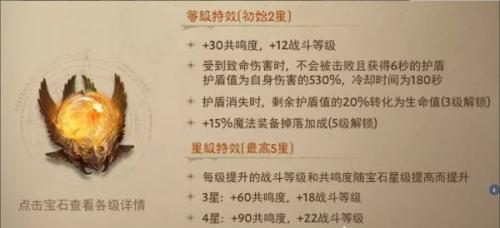 等级特效(初始2星)
+30共鸣度，+12战斗等级
受到致命伤害时，不会被击败且获得6秒的护盾
护盾值为自身伤害的530%，冷却时间为180秒
护盾消失时，剩余护盾值的20%转化为生命值(3级解锁)
+15%魔法装备掉落加成(5级解锁)
星级特效(最高5星)
每级提升的战斗等级和共鸣度随宝石星级提高而提升
3星：+60共鸣度，+18战斗等级
4星：+90共鸣度，+22战斗等级
点击宝石查看各级详情